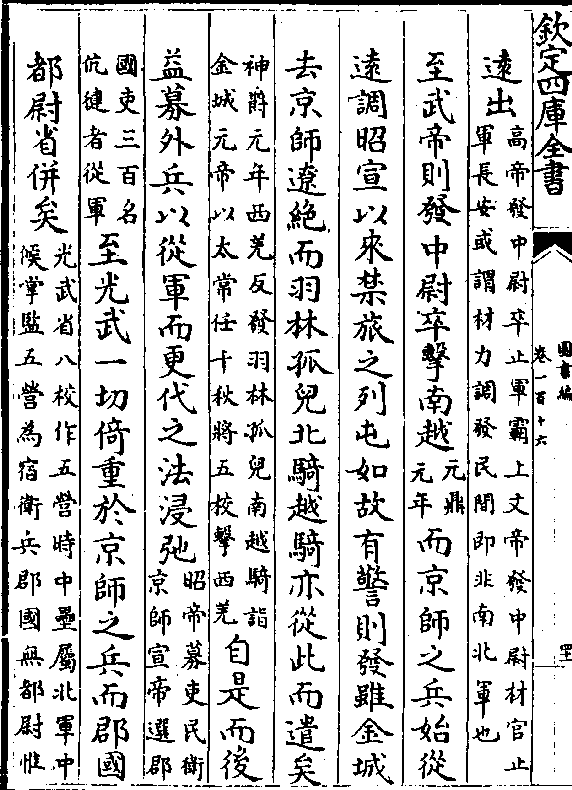 欽定四庫全書
圖書編
卷一百十六
罒
遠出
高帝發中尉卒止軍霸上文帝發中尉材官止
軍長安或謂材力調發民間即非南北軍也
至武帝則發中尉卒擊南越
元鼎
元年
而京師之兵始從
遠調昭宣以來禁旅之列屯如故有警則發雖金城
去京師遼絶而羽林孤兒北騎越騎亦從此而遣矣
神爵元年西羌反發羽林孤兒南越騎詣
金城元帝以太常任千秋將五校擊西羌
自是而後
益募外兵以從軍而更代之法浸弛
昭帝募吏民衛
京師宣帝選郡
國吏三百名
伉健者從軍
至光武一切倚重於京師之兵而郡國
都尉省併矣
光武省八校作五營時中壘屬北軍中
候掌監五營為宿衛兵郡國無都尉惟